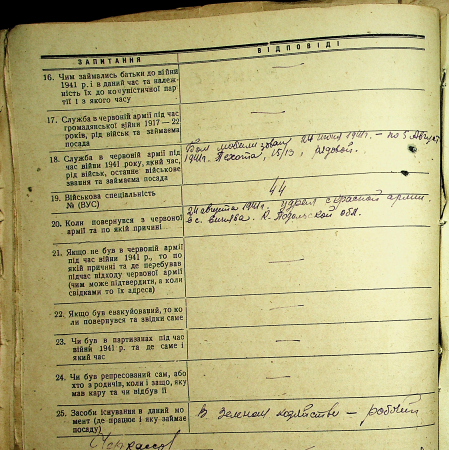 ЗАПИТАННЯ
ВІДПОВІДІ
16. Чим займались батьки до війни
1941 р. і в даний час та належ-
ність їх до ко-уністичної пар-
тії і з якого часу
17. Служба в червоній армії під час
громадянської війни 1917—22
років, рід військ та займаєма
посада
18. Служба в червоній армії під
час війни 1941 року, який час,
рід військ, останнє військове
звання та займаєма посада
Был мобилизован 24 июня 1941г. – по 5 Август
1941г. Пехота, 15/13, рядовой.
19. Військова спеціальність
№ (ВУС)
44
20. Коли повернувся з червоної
армії та по якій причині
24 августа 1941г. из Красной армии
в с.
обл.
21. Якщо не був в червоній армії
під час війни 1941 р., то по
якій причині та де перебував
підчас відходу червоної армії
(чим може підтвердити, а коли
свідками то їх адреса)
22. Якщо був евакуйований, то ко-
ли повернувся та звідки саме
23. Чи був в партизанах під час
війни 1941 р. та де саме і
який час
24. Чи був репресований сам, або
хто з родичів, коли і защо, яку
мав кару та чи відбув її
25. Засоби існування в даний мо-
мент (де працює і яку займає
посаду)
В земном хозяйстве – рабочий